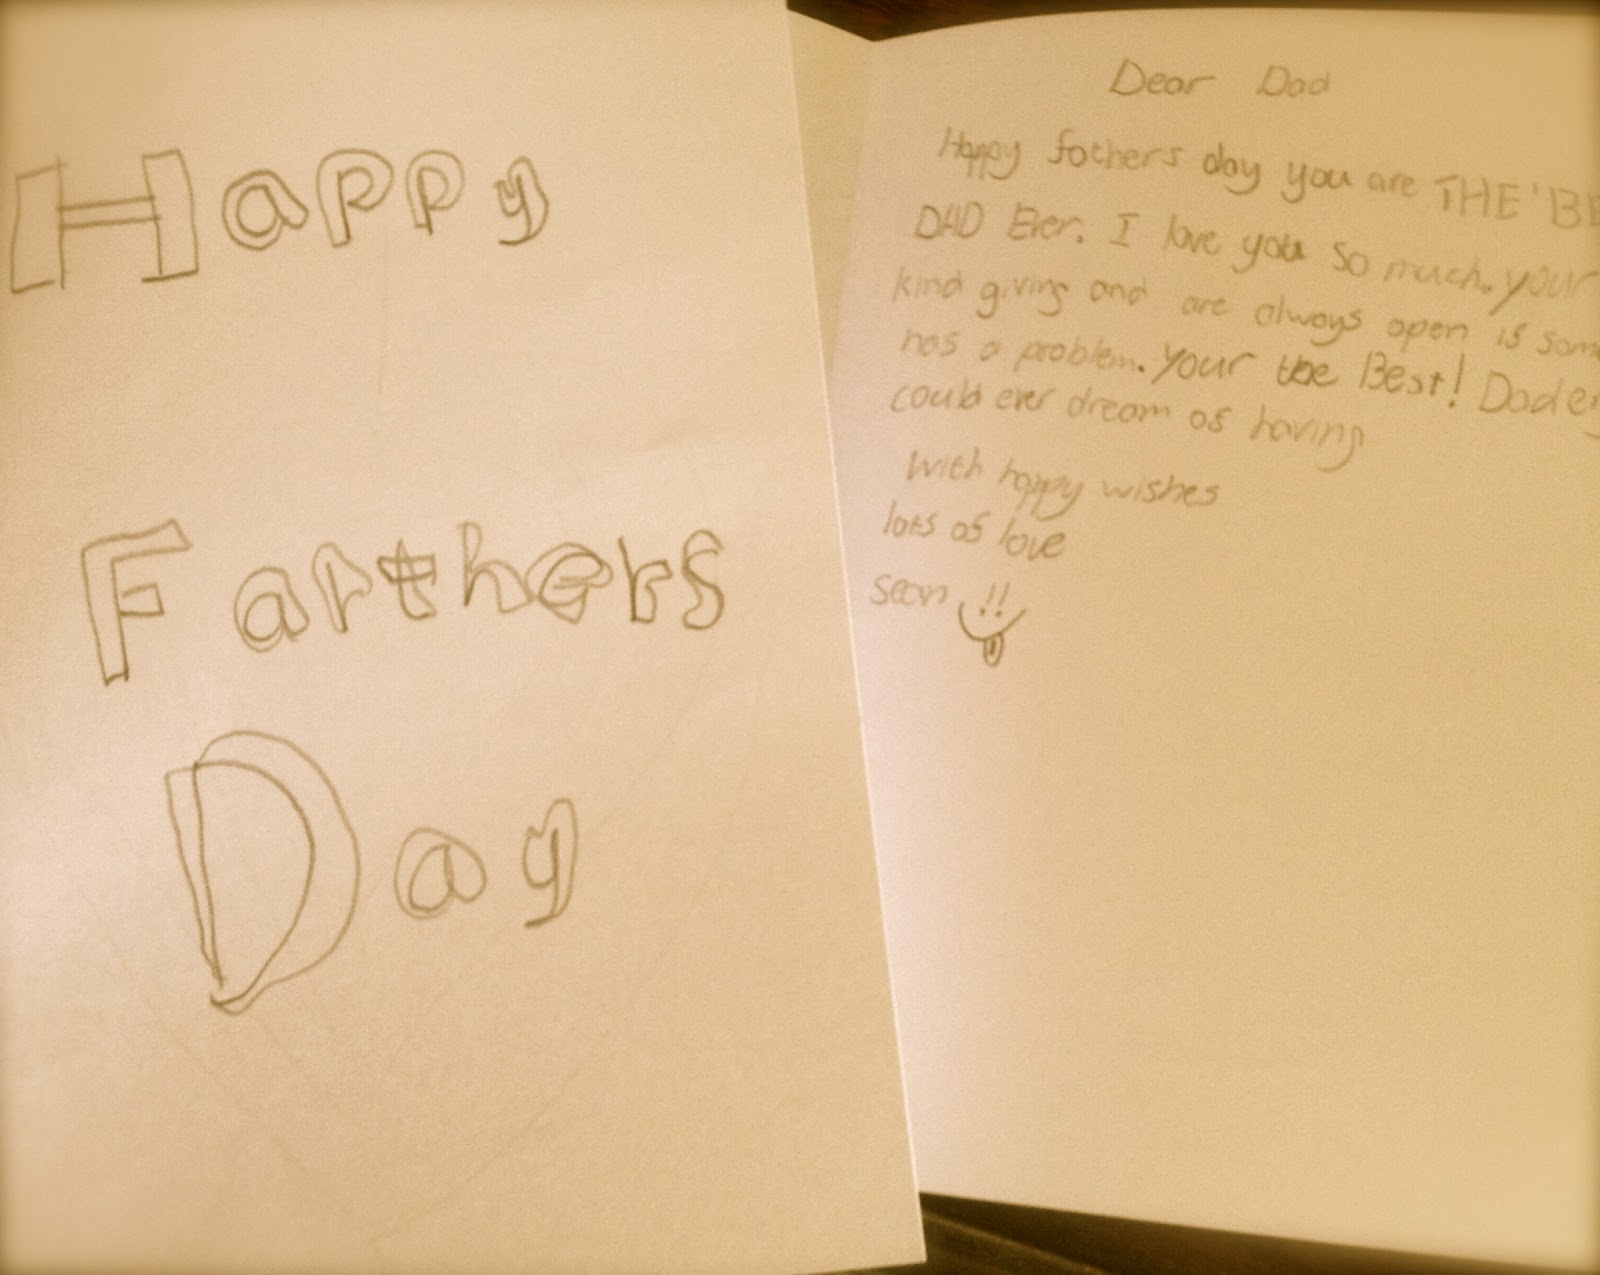 Happy
Farthers
Day
Dear Dad
Happy fathers day you are THE 'BE
DAD Ever. I love you so much. your
kind giving and are always open is some
has a problem. your the Best! Dad
could ever dream of having
With happy wishes
lots of love
sean !!